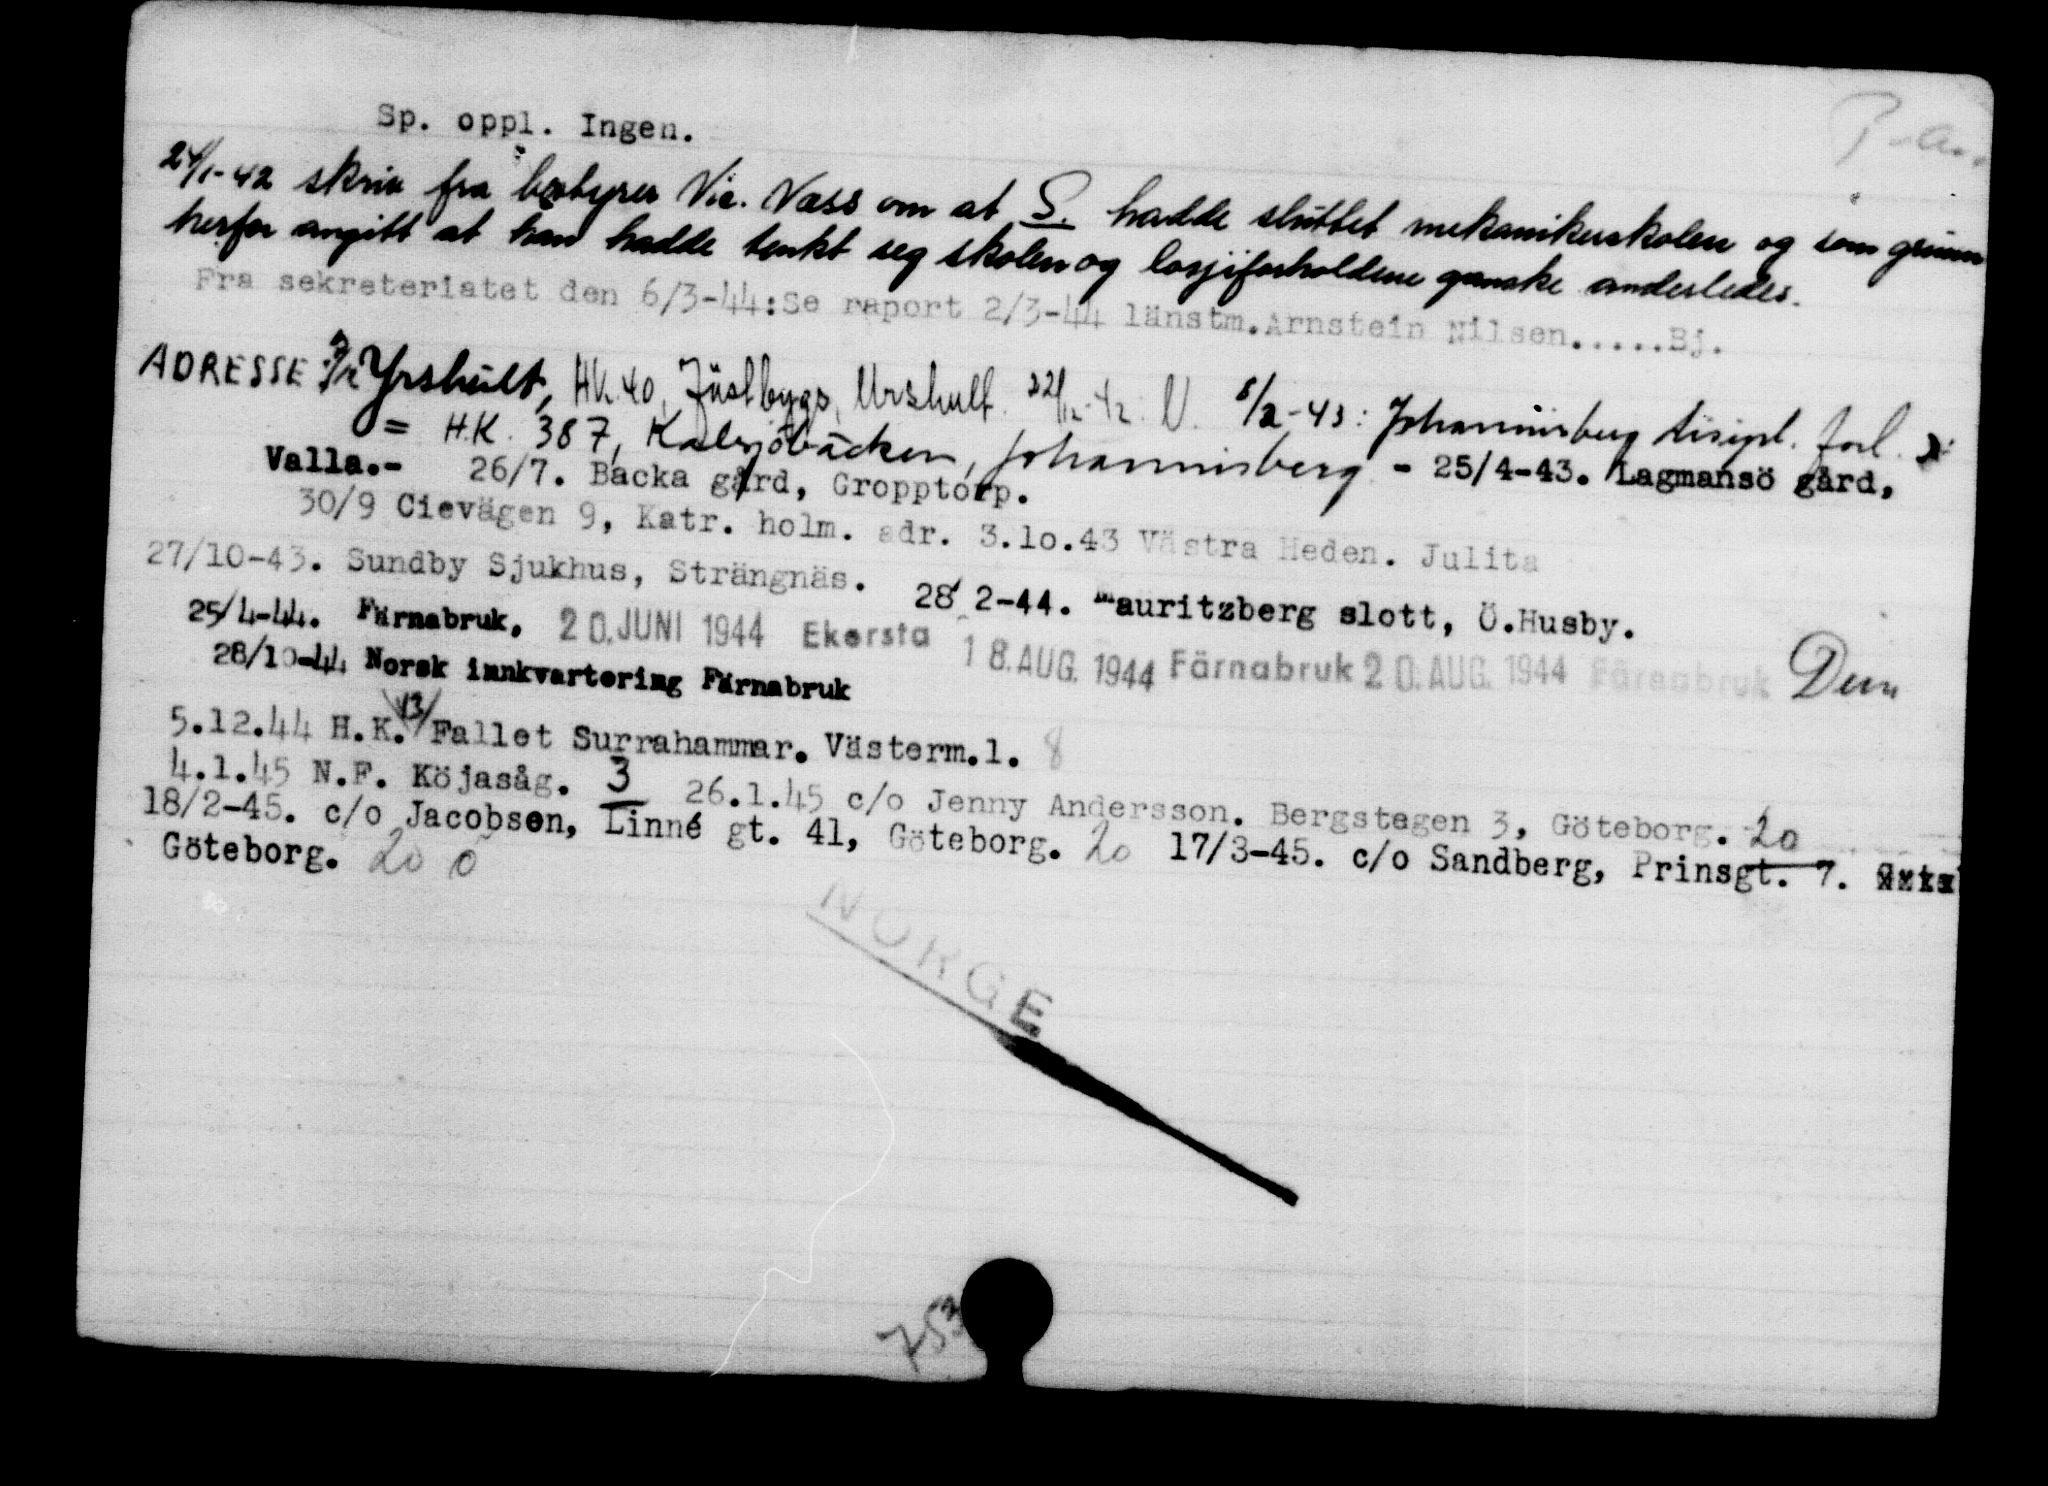 Sp. oppl. Ingen.
24/1-42 skriv fra bestyrer Nic. Næss om at S. hadde sluttet mekanikerskolen og som grunn
herfor angitt at han hadde tenkt seg skolen og losjiforholdene ganske anderledes.
Fra sekreteriatet den 6/3-44:Se raport 2/3-44 länstm.Arnstein Nilsen.....Bj.
ADRESSE: Yrshult, HK. 40, Urshult 22/12-42. 8/2-43: Johannisberg disipl. forl.
= H.K. 387, Johannisberg - 25/4-43. Lagmansö gård,
Valla.- 26/7. Backa gård, Gropptorp.
30/9 Cievägen 9, Katr. holm. adr. 3.10.43 Västra Heden. Julita
27/10-43. Sundby Sjukhus, Strängnäs. 28/2-44. Mauritzberg slott, Ö.Husby.
25/4-44. Färnabruk. 20. JUNI 1944 Ekersta 18. AUG. 1944 Färnabruk 20. AUG. 1944 Färnabruk
28/10-44 Norsk innkvartering Färnabruk
5.12.44 H.K. 13/ Fallet Surrahammar. Västerm.l. 8
4.1.45 N.F. Köjasåg. 3 26.1.45 c/o Jenny Andersson. Bergstegen 3, Göteborg. 20
18/2-45. c/o Jacobsen, Linné gt. 41, Göteborg. 20 17/3-45. c/o Sandberg, Prinsgt. 7.
Göteborg. 20 0
NORGE
753